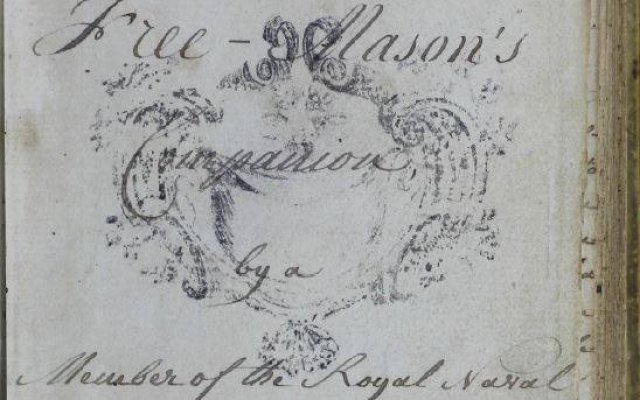 Free-Mason's
Companion,
by a
Member of the Royal Naval